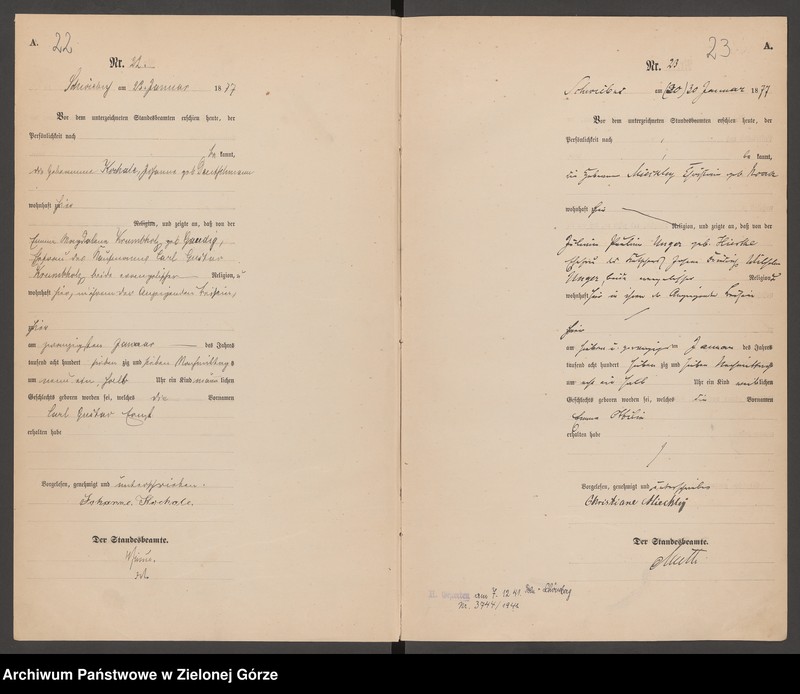 A. 22
Nr. 22.
am 22. Januar 1877
Vor dem unterzeichneten Standesbeamten erschien heute, der
Persönlichkeit nach
be kannt,
die Hebamme Kochale, Johanne geb.
wohnhaft hier
Religion, und zeigte an, daß von der
Emma Magdalena Krumbholz, geb. Gaudig,
Ehefrau des Kaufmanns Carl Gustav
Krumbholz, beide evangelischer Religion, u
wohnhaft hier, in ihrem der Anzeigenden Beisein,
hier
am zwanzigsten Januar des Jahres
tausend acht hundert sieben zig und sieben Nachmittags
um neun ein halb Uhr ein Kind männ lichen
Geschlechts geboren worden sei, welches die Vornamen
Carl Gustav Ernst
erhalten habe
Vorgelesen, genehmigt und unterschrieben.
Johanne Kochale.
Der Standesbeamte.
23 A.
Nr. 23
Schwiebus am (30) 30 Januar 1877
Vor dem unterzeichneten Standesbeamten erschien heute, der
Persönlichkeit nach
be kannt,
die Hebamme Mieckley Christiane geb.
wohnhaft hier
Religion, und zeigte an, daß von der
Pauline Unger geb.
Ehefrau des Johann Wilhelm
Unger, beide evangelischer Religion u
wohnhaft hier in ihrem der Anzeigenden Beisein
hier
am sieben u. zwanzigsten Januar des Jahres
tausend acht hundert sieben zig und sieben Nachmittags
um acht ein halb Uhr ein Kind weiblichen
Geschlechts geboren worden sei, welches die Vornamen
Emma Ottilie
erhalten habe
Vorgelesen, genehmigt und unterschrieben
Christiane Mieckley
Der Standesbeamte.
am 7.12.41.
Nr. 3744/1941
Archiwum Państwowe w Zielonej Górze